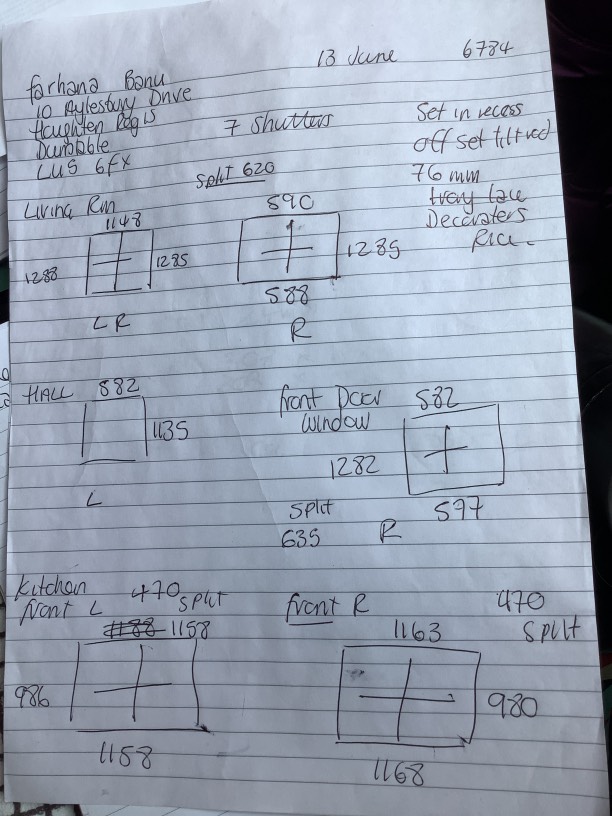 13 June 6784
Farhana Banu
10 Aylesbury Drive
Houghten Regis
Dunstable
LU5 6FX
7 Shutters
Set in recess
off set tilt rod
76 mm
Ivory lace
Decoraters
Rice.
Split 620
Living Rm
1148
1288
1285
L R
590
1285
588
R
HALL 882
1135
L
front Door
window
582
1282
597
Split
635
R
Kitchen
front L
470
Split
1188 1158
986
1158
front R
470
Split
1163
980
1168